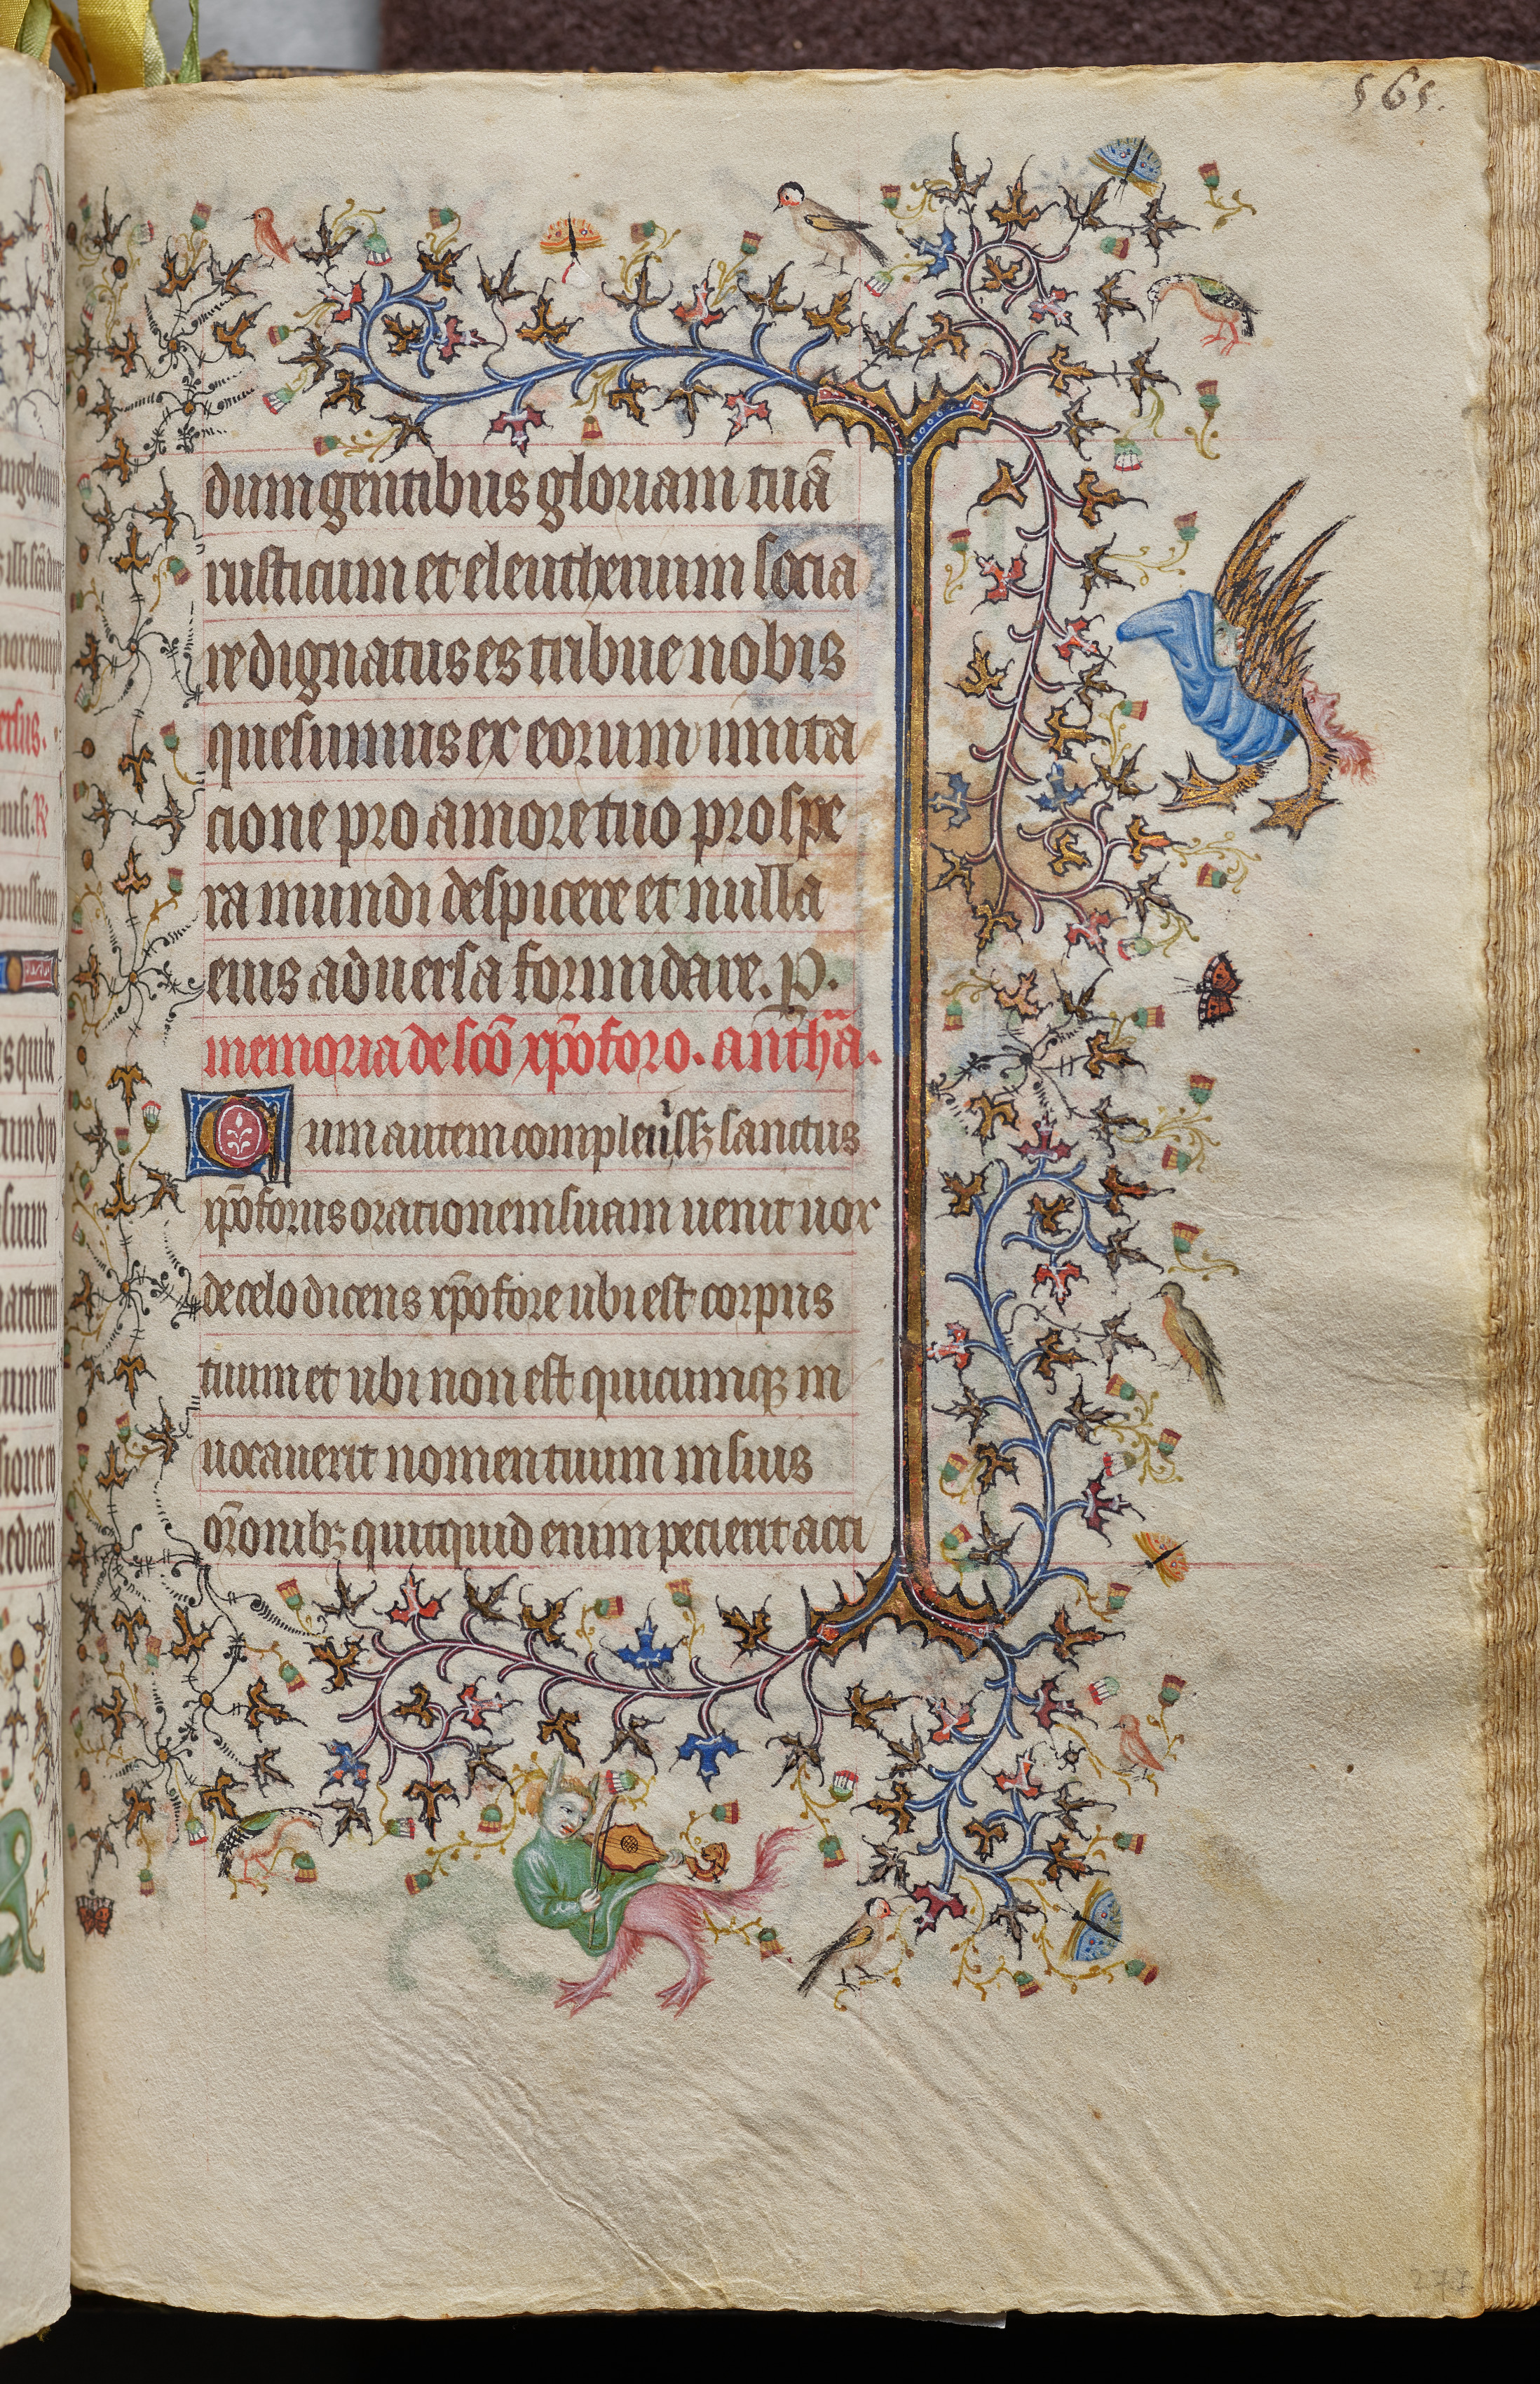 565.
dum gentibus gloriam tuā
rusticum et eleutherium socia
re dignatus es tribue nobis
quesumus ex eorum imita
cione pro amore tuo prospe
ra mundi despicere et nulla
eius aduersa formidare. P.
memoria de scō xp̄oforo. antħa.
Cum autem compleuissꝫ sanctus
xp̄oforus orationem suam uenit uox
de celo dicens xp̄ofore ubi est corpus
tuum et ubi non est quicumqꝫ in
uocauerit nomen tuum in suis
or̄onibꝫ quitquid enim pecierit acci
271